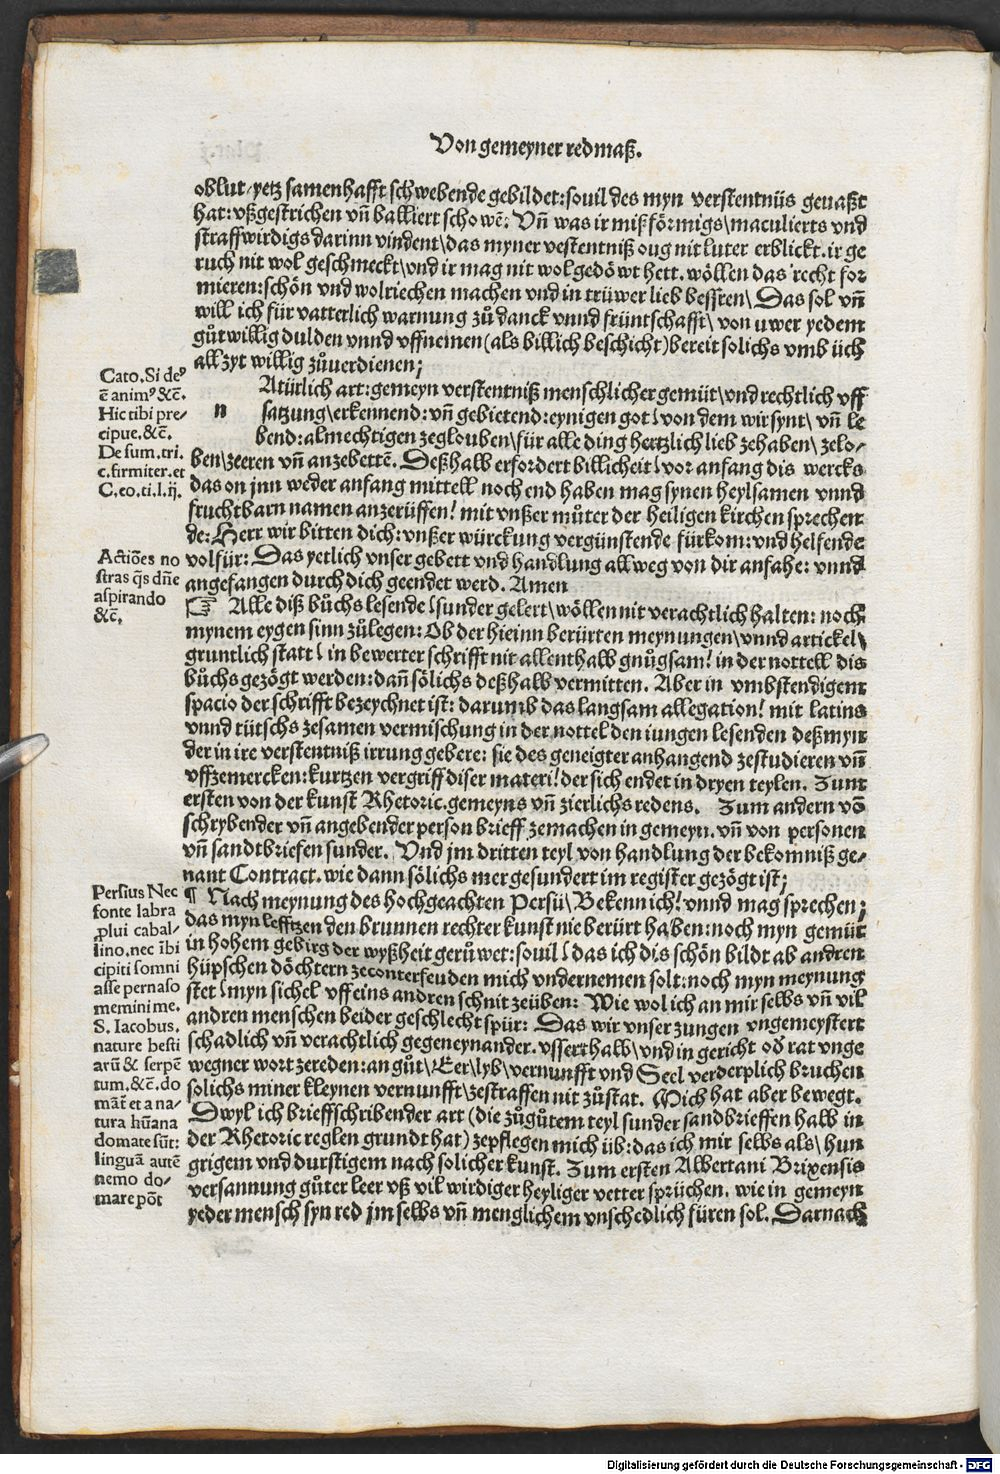 Von gemeyner redmaß.
oblut/yetz samenhafft schwebende gebildet:souil des myn verstentnüs geuaßt
hat:vßgestrichen vñ balliert schowē: Vñ was ir mißförmigs\maculierts vnd
straffwirdigs darinn vindent\das myner vestentniß oug nit luter erblickt.ir ge
ruch nit wol geschmeckt\vnd ir mag nit wol gedöwt hett. wöllen das recht for
mieren:schön vnd wolriechen machen vnd in trüwer lieb bessren\ Das sol vñ
will ich für vatterlich warnung zů danck vnnd früntschafft\ von uwer yedem
gůtwillig dulden vnnd vffnemen (als billich beschicht) bereit solichs vmb üch
all zyt willig zůuerdienen;
Cato.Si deꝰ
ē animꝰ &c̄.
Hic tibi pre-
cipue.&c̄.
De sum.tri.
c.firmiter.et
C.eo.ti.l.ij.
n
Atürlich art:gemeyn verstentniß menschlicher gemüt\vnd rechtlich vff
satzung\erkennend:vñ gebietend:eynigen got/von dem wir synt\ vñ le
bend:almechtigen zeglouben\für alle ding hertzlich lieb zehaben\ zelo-
ben\zeeren vñ anzebettē. Deßhalb erfordert billicheit/vor anfang dis wercks
das on jnn weder anfang mittell noch end haben mag synen heylsamen vnnd
fruchtbarn namen anzerüffen! mit vnßer můter der heiligen kirchen sprechen
de:Herr wir bitten dich:vnßer würckung vergünstende fürkom:vnd helfende
volfür: Das yetlich vnser gebett vnd handlung allweg von dir anfahe: vnnd
angefangen durch dich geendet werd. Amen
Actiões no
stras q̄s dñe
aspirando
&c̄.
☞ Alle diß bůchs lesende/sunder gelert\wöllen nit verachtlich halten: noch
mynem eygen sinn zůlegen: Ob der hieinn berürten meynungen\vnnd artickel\
gruntlich statt/in bewerter schrifft nit allenthalb gnůgsam! in der nottell dis
bůchs gezögt werden:dañ sölichs deßhalb vermitten. Aber in vmbstendigem
spacio der schrifft bezeychnet ist: darumb das langsam allegation! mit latins
vnnd tütschs zesamen vermischung in der nottel den iungen lesenden deßmyn
der in ire verstentniß irrung gebere: sie des geneigter anhangend zestudieren vñ
vffzemercken:kurtzen vergriff diser materi!der sich endet in dryen teylen. Zum
ersten von der kunst Rhetoric.gemeyns vñ zierlichs redens. Zum andern vō
schrybender vñ angebender person brieff zemachen in gemeyn.vñ von personen
vñ sandtbriefen sunder. Vnd jm dritten teyl von handlung der bekomniß ge-
nant Contract.wie dann sölichs mer gesundert im register gezögt ist;
Persius Nec
fonte labra
ꝓlui cabal-
lino.nec ībi
cipiti somni
asse pernaso
memini me.
S. Iacobus.
nature besti
arū & serpē
tum.&c̄.do
māt̄ et a na-
tura hūana
domate sūt:
linguā autē
nemo do-
mare põt
¶ Nach meynung des hochgeachten Persii\Bekenn ich!vnnd mag sprechen;
das myn lefftzen den brunnen rechter kunst nie berürt haben:noch myn gemüt
in hohem gebirg der wyßheit gerůwet:souil/das ich dis schön bildt ab andren
hüpschen döchtern zeconterfeuden mich vndernemen solt:noch myn meynung
stet/myn sichel vff eins andren schnit zeüben: Wie wol ich an mir selbs vñ vil
andren menschen beider geschlecht spür: Das wir vnser zungen vngemeystert
schadlich vñ verachtlich gegeneynander.vsserthalb\vnd in gericht od̄ rat vnge
wegner wort zereden:an gůt\Eer\lyb\vernunfft vnd Seel verderplich bruchen
solichs miner kleynen vernunfft\zestraffen nit zůstat. Mich hat aber bewegt.
Dwyl ich brieffschribender art (die zůgůtem teyl sunder sandbrieffen halb in
der Rhetoric reglen grundt hat) zepflegen mich üb:das ich mir selbs als\hun
grigem vnd durstigem nach solicher kunst. Zum ersten Albertani Brixensis
versannung gůter leer vß vil wirdiger heyliger vetter sprüchen. wie in gemeyn
yeder mensch syn red jm selbs vñ menglichem vnschedlich füren sol. Darnach
Digitalisierung gefördert durch die Deutsche Forschungsgemeinschaft - DFG